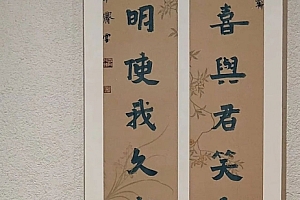 喜與君笑
明使我久